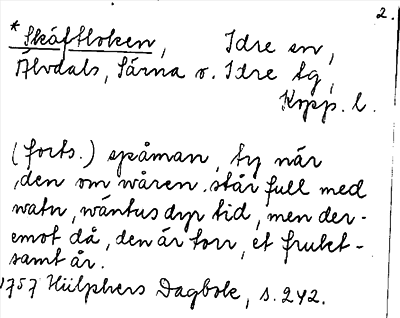 2.
*Skäftloken, Idre sn,
Älvdals, Särna o. Idre tg,
Kopp. l.
(forts.) spåman, ty när
den om wåren står full med
watn, wäntus dyr tid, men der-
emot då, den är torr, et frukt-
samt år.
1757 Hülphers Dagbok, s. 242.